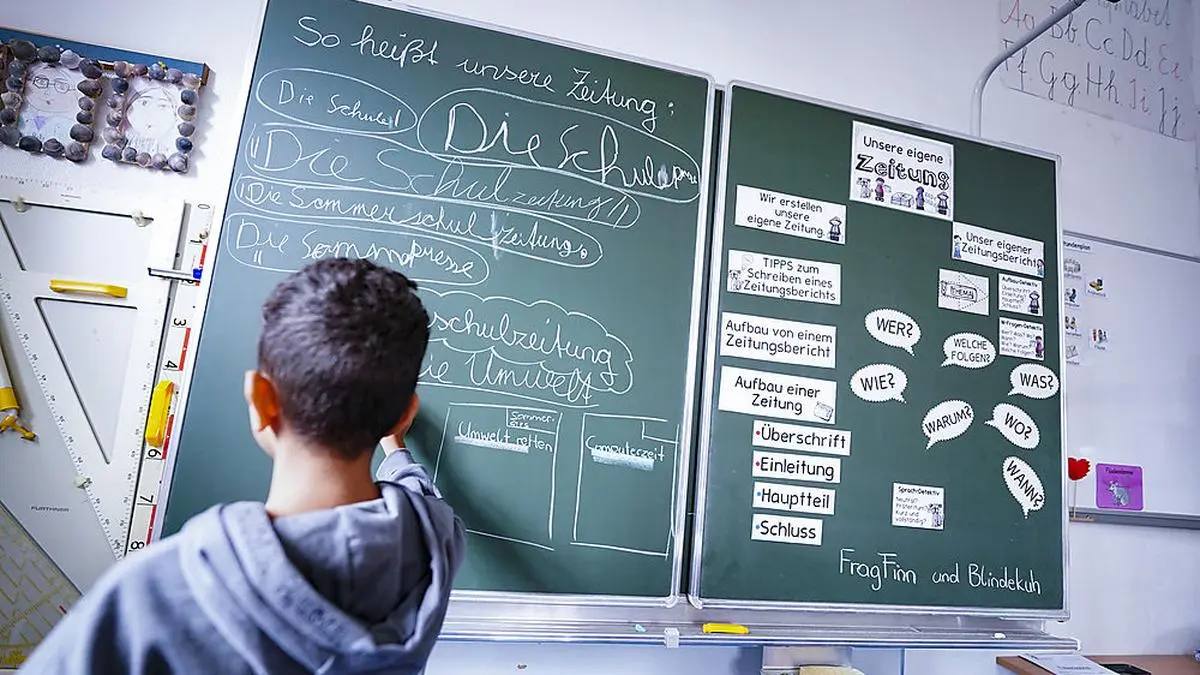 So heißt unsere Zeitung:
Die Schule!
Die Schulepress
"Die Schulzeitung"
"Die Sommerschulzeitung"
Die Sommpresse
schulzeitung
die Umwelt
Umwelt retten
Computerzeit
Unsere eigene
Zeitung
Wir erstellen
unsere
eigene Zeitung.
Unser eigener
Zeitungsbericht
TIPPS zum
Schreiben eines
Zeitungsberichts
THEMA
Aufbau-Detektiv
W-Fragen-Detektiv
Aufbau von einem
Zeitungsbericht
WER?
WELCHE
FOLGEN?
Aufbau einer
Zeitung
WIE?
WAS?
WARUM?
WO?
Überschrift
Einleitung
Hauptteil
Schluss
WANN?
Sprach-Detektiv
Neutral?
Präteritum?
Kurz und
vollständig?
FragFinn und Blindekuh
Aa Bb Cc Dd Ee
Ff Gg Hh Ii Jj
Stundenplan
3
4
6
7
8